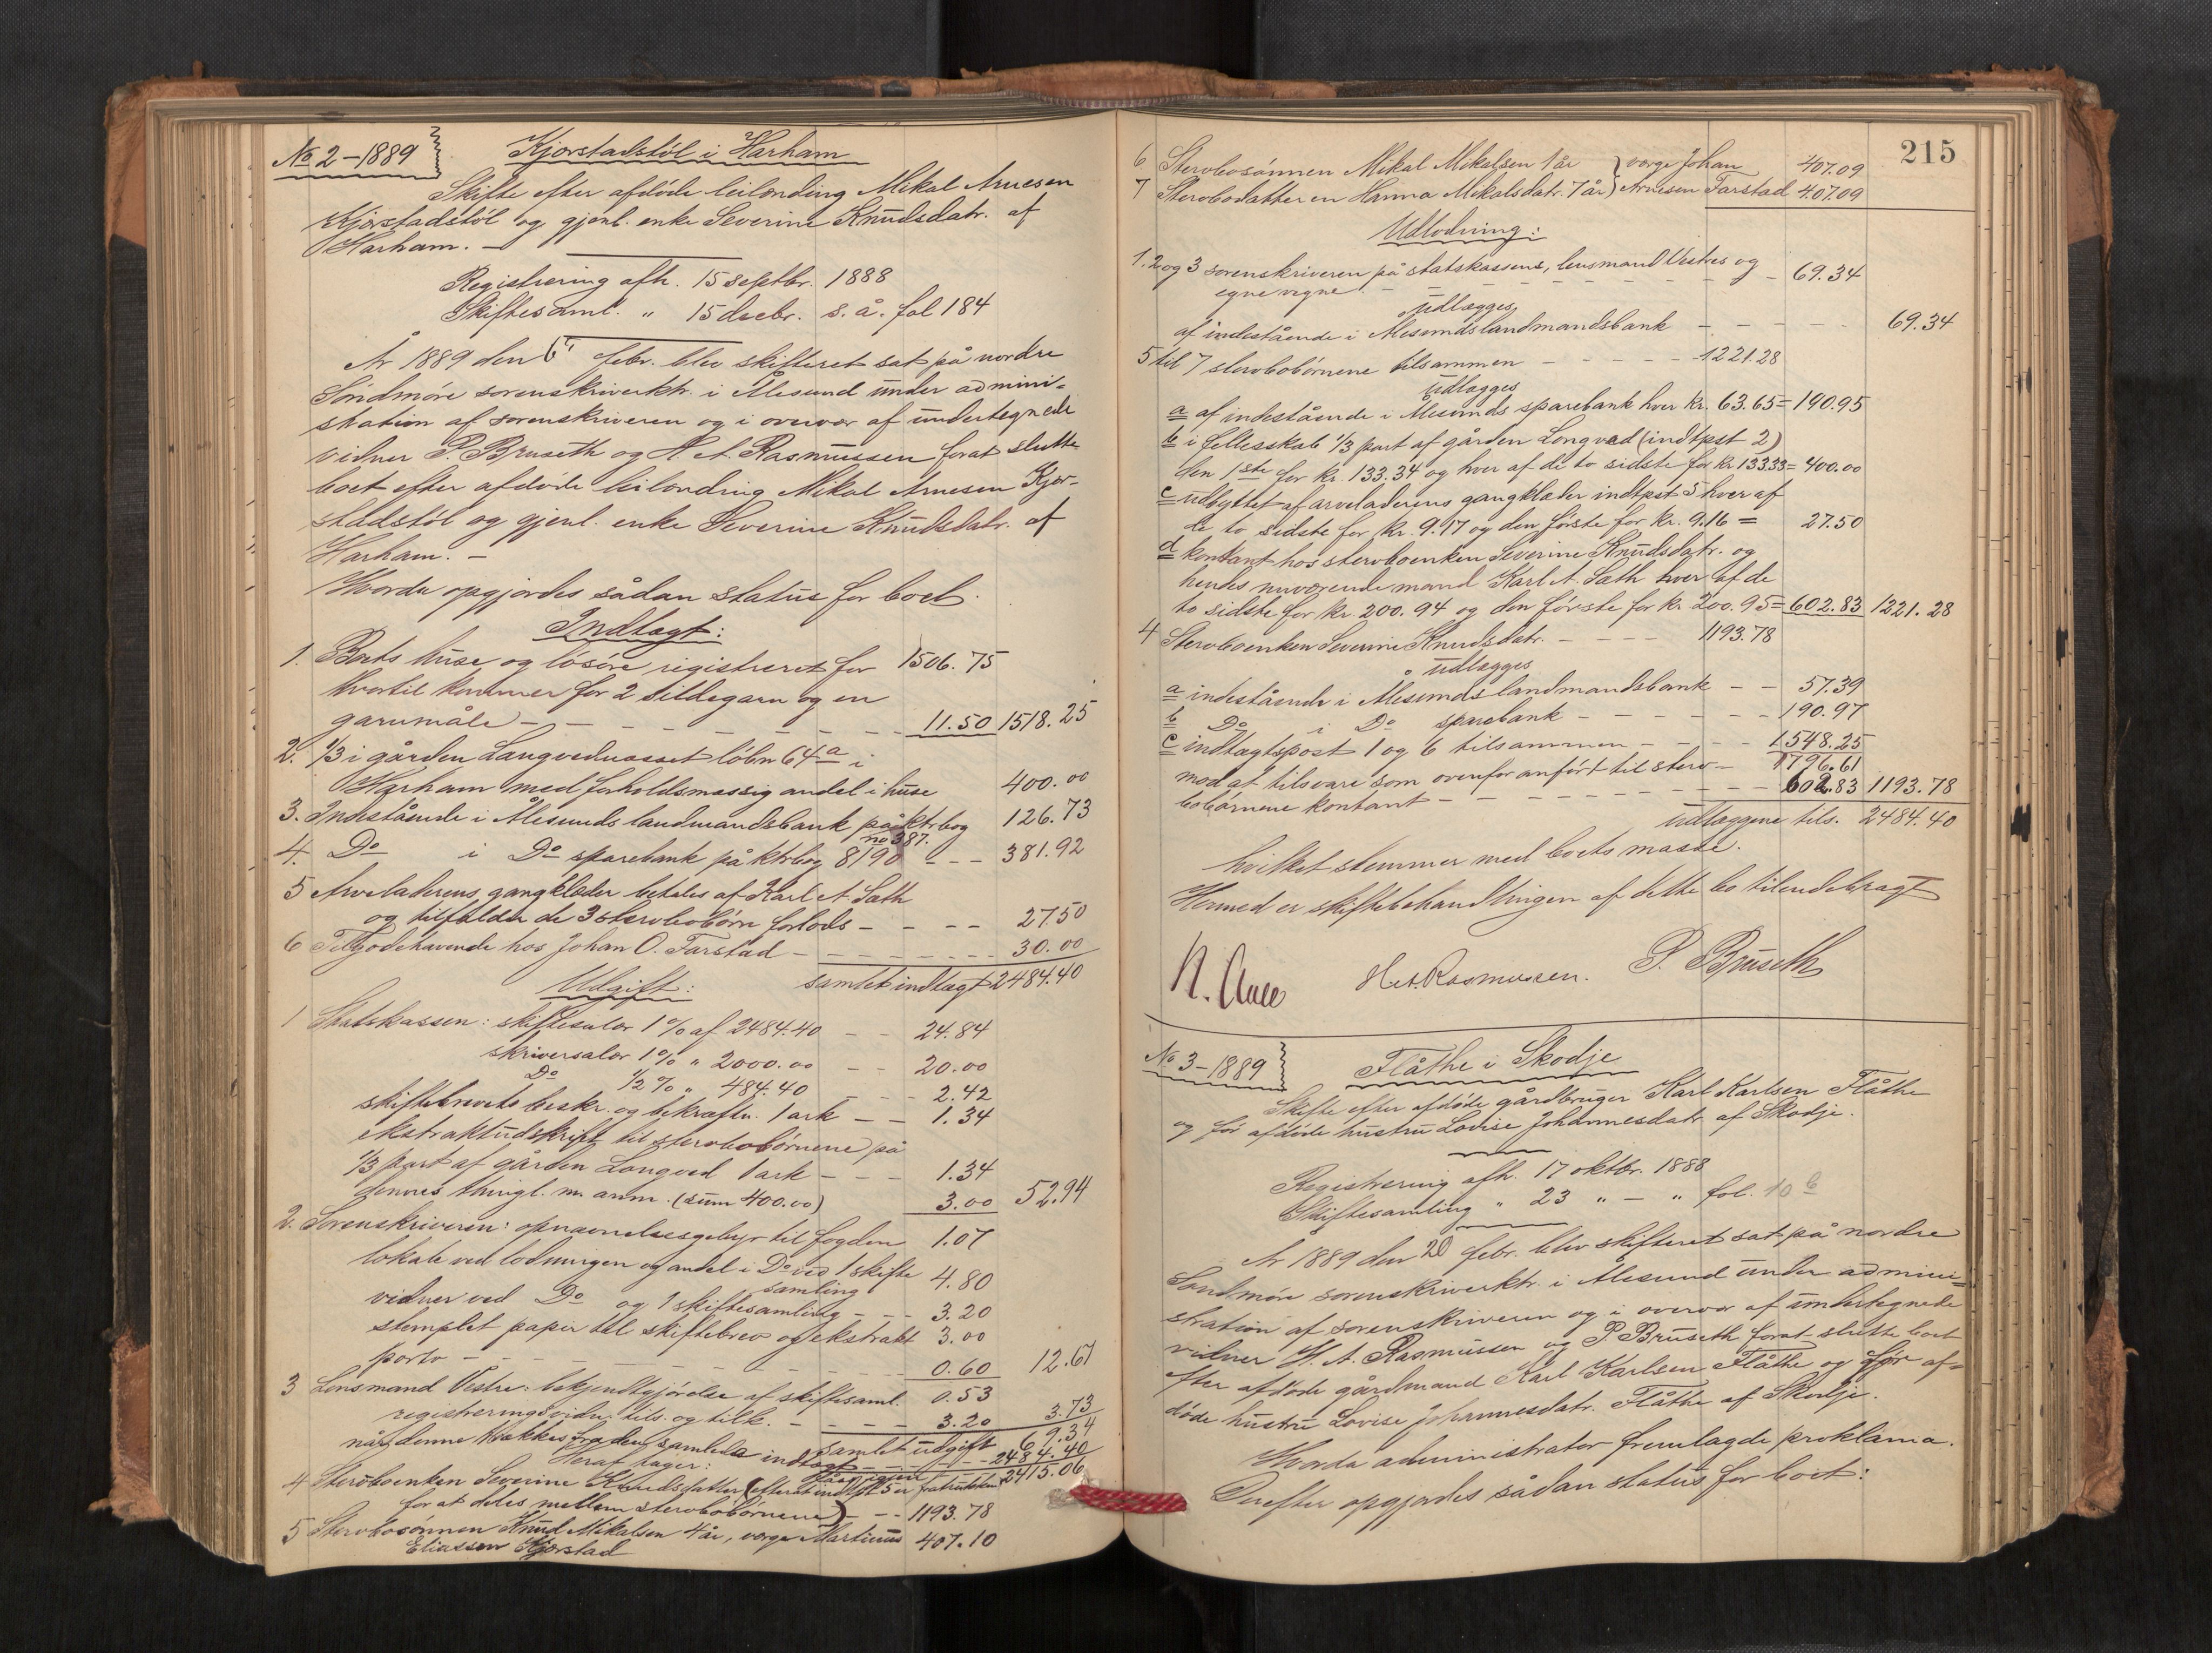 No 2-1889
Kjørstadstøl i Harham
Skifte efter afdøde leilænding Mikal Arnesen
Kjørstadstøl og gjenl. enke Severine Knudsdatr. af
Harham. —
Registrering afh. 15 septbr. 1888
Skiftesaml. " 15 decbr. s. å. fol 184
År 1889 den 6' febr. blev skifteret sat på nordre
Søndmøre sorenskriverktr. i Ålesund under admini-
stration af sorenskriveren og i overvær af undertegnede
vidner P. Bruseth og H. A. Rasmussen forat slutte
boet efter afdøde leilænding Mikal Arnesen Kjør-
stadstøl og gjenl. enke Severine Knudsdatr. af
Harham. —
Hvorda opgjordes sådan status for boet.
Indtægt:
1. Boets huse og løsøre registreret for 1506.75
hvortil kommer for 2 sildegarn og en
garnmåle - - - 11.50 1518.25
2. 1/3 i gården Langvednæsset løbn 64a i
Harham med forholdsmæssig andel i huse 400.00
3. Indestående i Ålesunds landmandsbank på ktrbog
no 387. 126.73
4. Do i Do sparebank på ktrbog 8190 - - - 381.92
5 Arveladerens gangklæder betales af Karl A Sæth
og tilfalder de 3 stervbobørn forlods - - - 27.50
6 Tilgodehavende hos Johan O. Farstad - - - 30.00
samlet indtægt 2484.40
Udgift:
1 Statskassen: skiftesalær 1% af 2484.40 - - 24.84
skriversalær 1% " 2000.00 - - 20.00
Do 1/2% " 484.40 - - 2.42
skiftebrevets beskr. og bekræftn. 1 ark - - 1.34
ekstraktudskrift til stervbobørnene på
1/3 part af gården Langved 1 ark - - - 1.34
dennes thingl. m. anm. (sum 400.00) 3.00 52.94
2. Sorenskriveren: opnævnelsesgebyr til fogden 1.07
lokale ved lodningen og andel i Do ved 1 skifte
samling 4.80
vidner ved Do og 1 skiftesamling - - - 3.20
stemplet papir til skiftebrev og ekstrakt 3.00
porto - - - 0.60 12.67
3 Lensmand Vestre: bekjendtgjørelse af skiftesaml. 0.53
registreringsvidn. tils. og tilk. - - - 3.20 3.73
samlet udgift 69.34
når denne trækkes fra den samlede indtægt - - - 2484.40
fåes igjen 2415.06
Heraf tager:
4 Stervboenken Severine Knudsdatter (efterat indtpst 5 er fratrukken
for at deles mellem stervbobørnene) - - - 1193.78
5 Stervbosønnen Knud Mikalsen 4 år, værge Martinus 407.10
Eliassen Kjørstad
215
6 Stervbosønnen Mikal Mikalsen 1 år } værge Johan 407.09
7 Stervbodatteren Hanna Mikalsdatr. 7 år } Arnesen Farstad 407.09
Udlodning:
1. 2 og 3 sorenskriveren på statskassens, lensmand Vestres og
egne vegne - - - 69.34
udlægges
af indestående i Ålesunds landmandsbank - - - 69.34
5 til 7 stervbobørnene tilsammen - - - 1221.28
udlægges
a af indestående i Ålesunds sparebank hver kr. 63.65 = 190.95
b i fellesskab 1/3 part af gården Langved (indtpst 2)
den 1ste for kr. 133.34 og hver af de to sidste for kr 133.33 = 400.00
c udbyttet af arveladerens gangklæder indtpst 5 hver af
de to sidste for kr. 9.17 og den første for kr. 9.16 = 27.50
d kontant hos stervboenken Severine Knudsdatr. og
hendes nuværende mand Karl A. Sæth hver af de
to sidste for kr. 200.94 og den første for kr. 200.95 = 602.83 1221.28
4 Stervboenken Severine Knudsdatr. - - - 1193.78
udlægges
a indestående i Ålesunds landmandsbank - - 57.39
b Do i Do sparebank - - - 190.97
c indtægtspost 1 og 6 tilsammen - - - 1548.25
1796.61
mod at tilsvare som ovenfor anført til sterv-
bobørnene kontant - - - 602.83 1193.78
Udlæggene tils. 2484.40
hvilket stemmer med boets masse.
Hermed er skiftebehandlingen af dette bo tilendebragt
H. A. Rasmussen. P. Bruseth
No 3-1889
Flåthe i Skodje
Skifte efter afdøde gårdbruger Karl Karlsen Flåthe
og før afdøde hustru Lovise Johannesdatr af Skodje.
Registrering afh. 17 oktbr. 1888
Skiftesamling " 23 " - " fol. 10 b
År 1889 den 20 febr. blev skifteret sat på nordre
Søndmøre sorenskriverktr. i Ålesund under admini-
stration af sorenskriveren og i overvær af undertegnede
vidner H. A. Rasmussen og P. Bruseth forat slutte boet
efter afdøde gårdmand Karl Karlsen Flåthe og før af-
døde hustru Lovise Johannesdatr. Flåthe af Skodje.
Hvorda administrator fremlagde proklama.
Derefter opgjordes sådan status for boet: